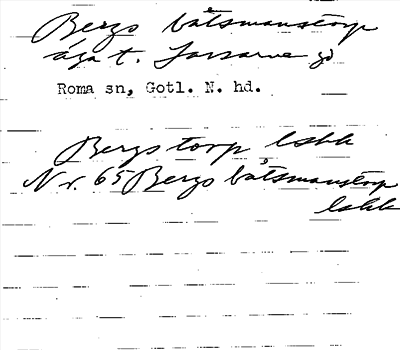 Bergs båtsmanstorp
äga t. Larsarve gd
Roma sn, Gotl. N. hd.
Bergstorp lskk
Nr. 65 Bergs båtsmanstorp
lskk